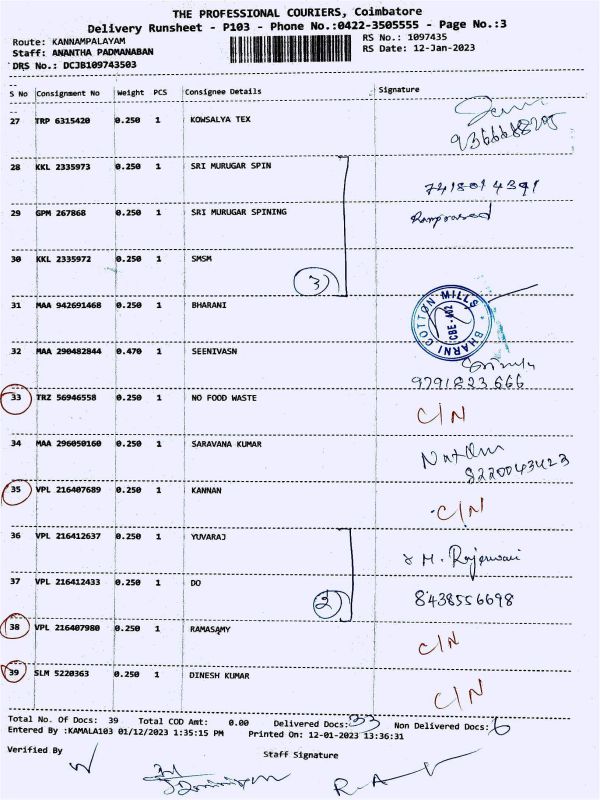 THE PROFESSIONAL COURIERS, Coimbatore
Delivery Runsheet - P103 - Phone No.:0422-3505555 - Page No.:3
Route: KANNAMPALAYAM
RS No.: 1097435
Staff: ANANTHA PADMANABAN
RS Date: 12-Jan-2023
DRS No.: DCJB109743503
S No Consignment No Weight PCS Consignee Details Signature
27 TRP 6315420 0.250 1 KOWSALYA TEX
28 KKL 2335973 0.250 1 SRI MURUGAR SPIN
29 GPM 267868 0.250 1 SRI MURUGAR SPINING Ramprasad
30 KKL 2335972 0.250 1 SMSM
3
31 MAA 942691468 0.250 1 BHARANI
BHARNI COTTON MILLS CBE-402
32 MAA 290482844 0.470 1 SEENIVASN
9791823666
33 TRZ 56946558 0.250 1 NO FOOD WASTE C/N
34 MAA 296050160 0.250 1 SARAVANA KUMAR
8220043423
35 VPL 216407689 0.250 1 KANNAN C/N
36 VPL 216412637 0.250 1 YUVARAJ
37 VPL 216412433 0.250 1 DO 8438556698
2
38 VPL 216407980 0.250 1 RAMASAMY C/N
39 SLM 5220363 0.250 1 DINESH KUMAR C/N
Total No. Of Docs: 39 Total COD Amt: 0.00 Delivered Docs: 33 Non Delivered Docs: 6
Entered By :KAMALA103 01/12/2023 1:35:15 PM Printed On: 12-01-2023 13:36:31
Verified By Staff Signature